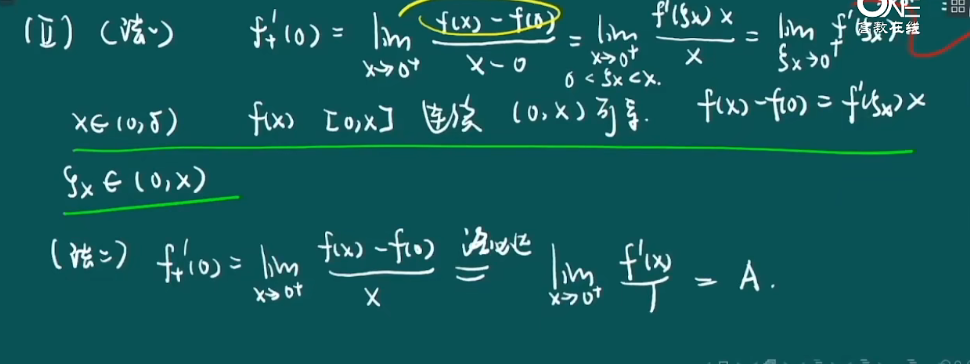 (II) (法一) f₊'(0) = lim_{x→0⁺} (f(x)-f(0))/(x-0) = lim_{x→0⁺} (f'(ξx) x)/x = lim_{ξx→0⁺} f'(ξx)
0 < ξx < x.
x∈(0,δ) f(x) [0,x] 连续 (0,x) 可导. f(x)-f(0) = f'(ξx) x
ξx ∈ (0,x)
(法二) f₊'(0) = lim_{x→0⁺} (f(x)-f(0))/x = 洛必达 lim_{x→0⁺} f'(x)/1 = A.
ONE
在线